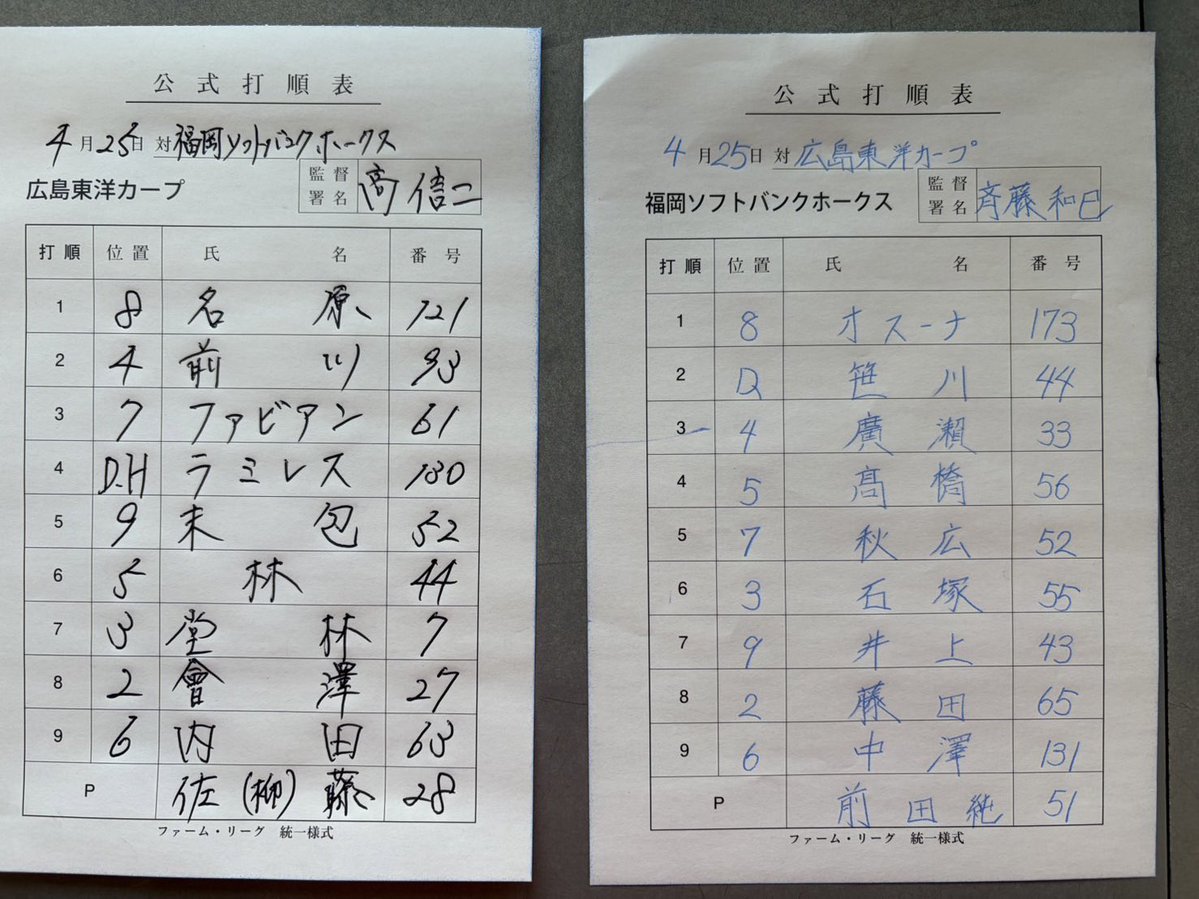 公式打順表
4月25日 対 福岡ソフトバンクホークス
広島東洋カープ 監督署名 高信二
打順 位置 氏名 番号
1 8 名原 121
2 4 前川 93
3 7 ファビアン 61
4 D.H ラミレス 130
5 9 末包 52
6 5 林 44
7 3 堂林 7
8 2 會澤 27
9 6 内田 63
P 佐(柳)藤 28
ファーム・リーグ 統一様式
公式打順表
4月25日 対 広島東洋カープ
福岡ソフトバンクホークス 監督署名 斉藤和巳
打順 位置 氏名 番号
1 8 オスーナ 173
2 D 笹川 44
3 4 廣瀨 33
4 5 髙橋 56
5 7 秋広 52
6 3 石塚 55
7 9 井上 43
8 2 藤田 65
9 6 中澤 131
P 前田純 51
ファーム・リーグ 統一様式